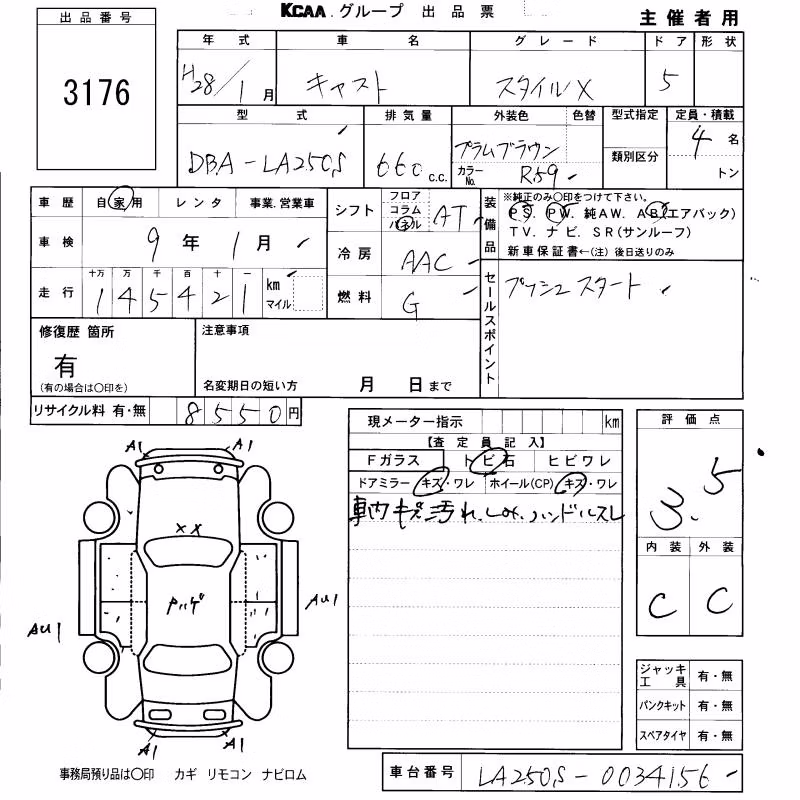 KCAA グループ 出品票
主催者用
出品番号
3176
年式 車名 グレード ドア 形状
H28/1月 キャスト スタイルX 5
型式 排気量 外装色 色替 型式指定 定員・積載
DBA-LA250S 660c.c. プラムブラウン 類別区分 4名
カラーNo. R59 トン
車歴 自家用 レンタ 事業.営業車
車検 9年 1月
走行 十万 万 千 百 十 一
145421 km マイル
シフト フロア コラム パネル AT
冷房 AAC
燃料 G
装備品 ※純正のみ○印をつけて下さい。
PS. PW. 純AW. AB(エアバック)
TV. ナビ. SR(サンルーフ)
新車保証書←(注) 後日送りのみ
セールスポイント プッシュスタート
修復歴 箇所 注意事項
有
(有の場合は○印を) 名変期日の短い方 月 日まで
リサイクル料 有・無 8550円
現メーター指示 km
【査定員記入】
Fガラス トビ石 ヒビワレ
ドアミラー キズ・ワレ ホイール(CP) キズ・ワレ
車内キズ汚れ、シミ、ハンドルスレ
評価点
3.5
内装 外装
C C
A1 A1
XX
Pハゲ
AU1 AU1
A1 A1
ジャッキ工具 有・無
パンクキット 有・無
スペアタイヤ 有・無
事務局預り品は○印 カギ リモコン ナビロム
車台番号 LA250S-0034156